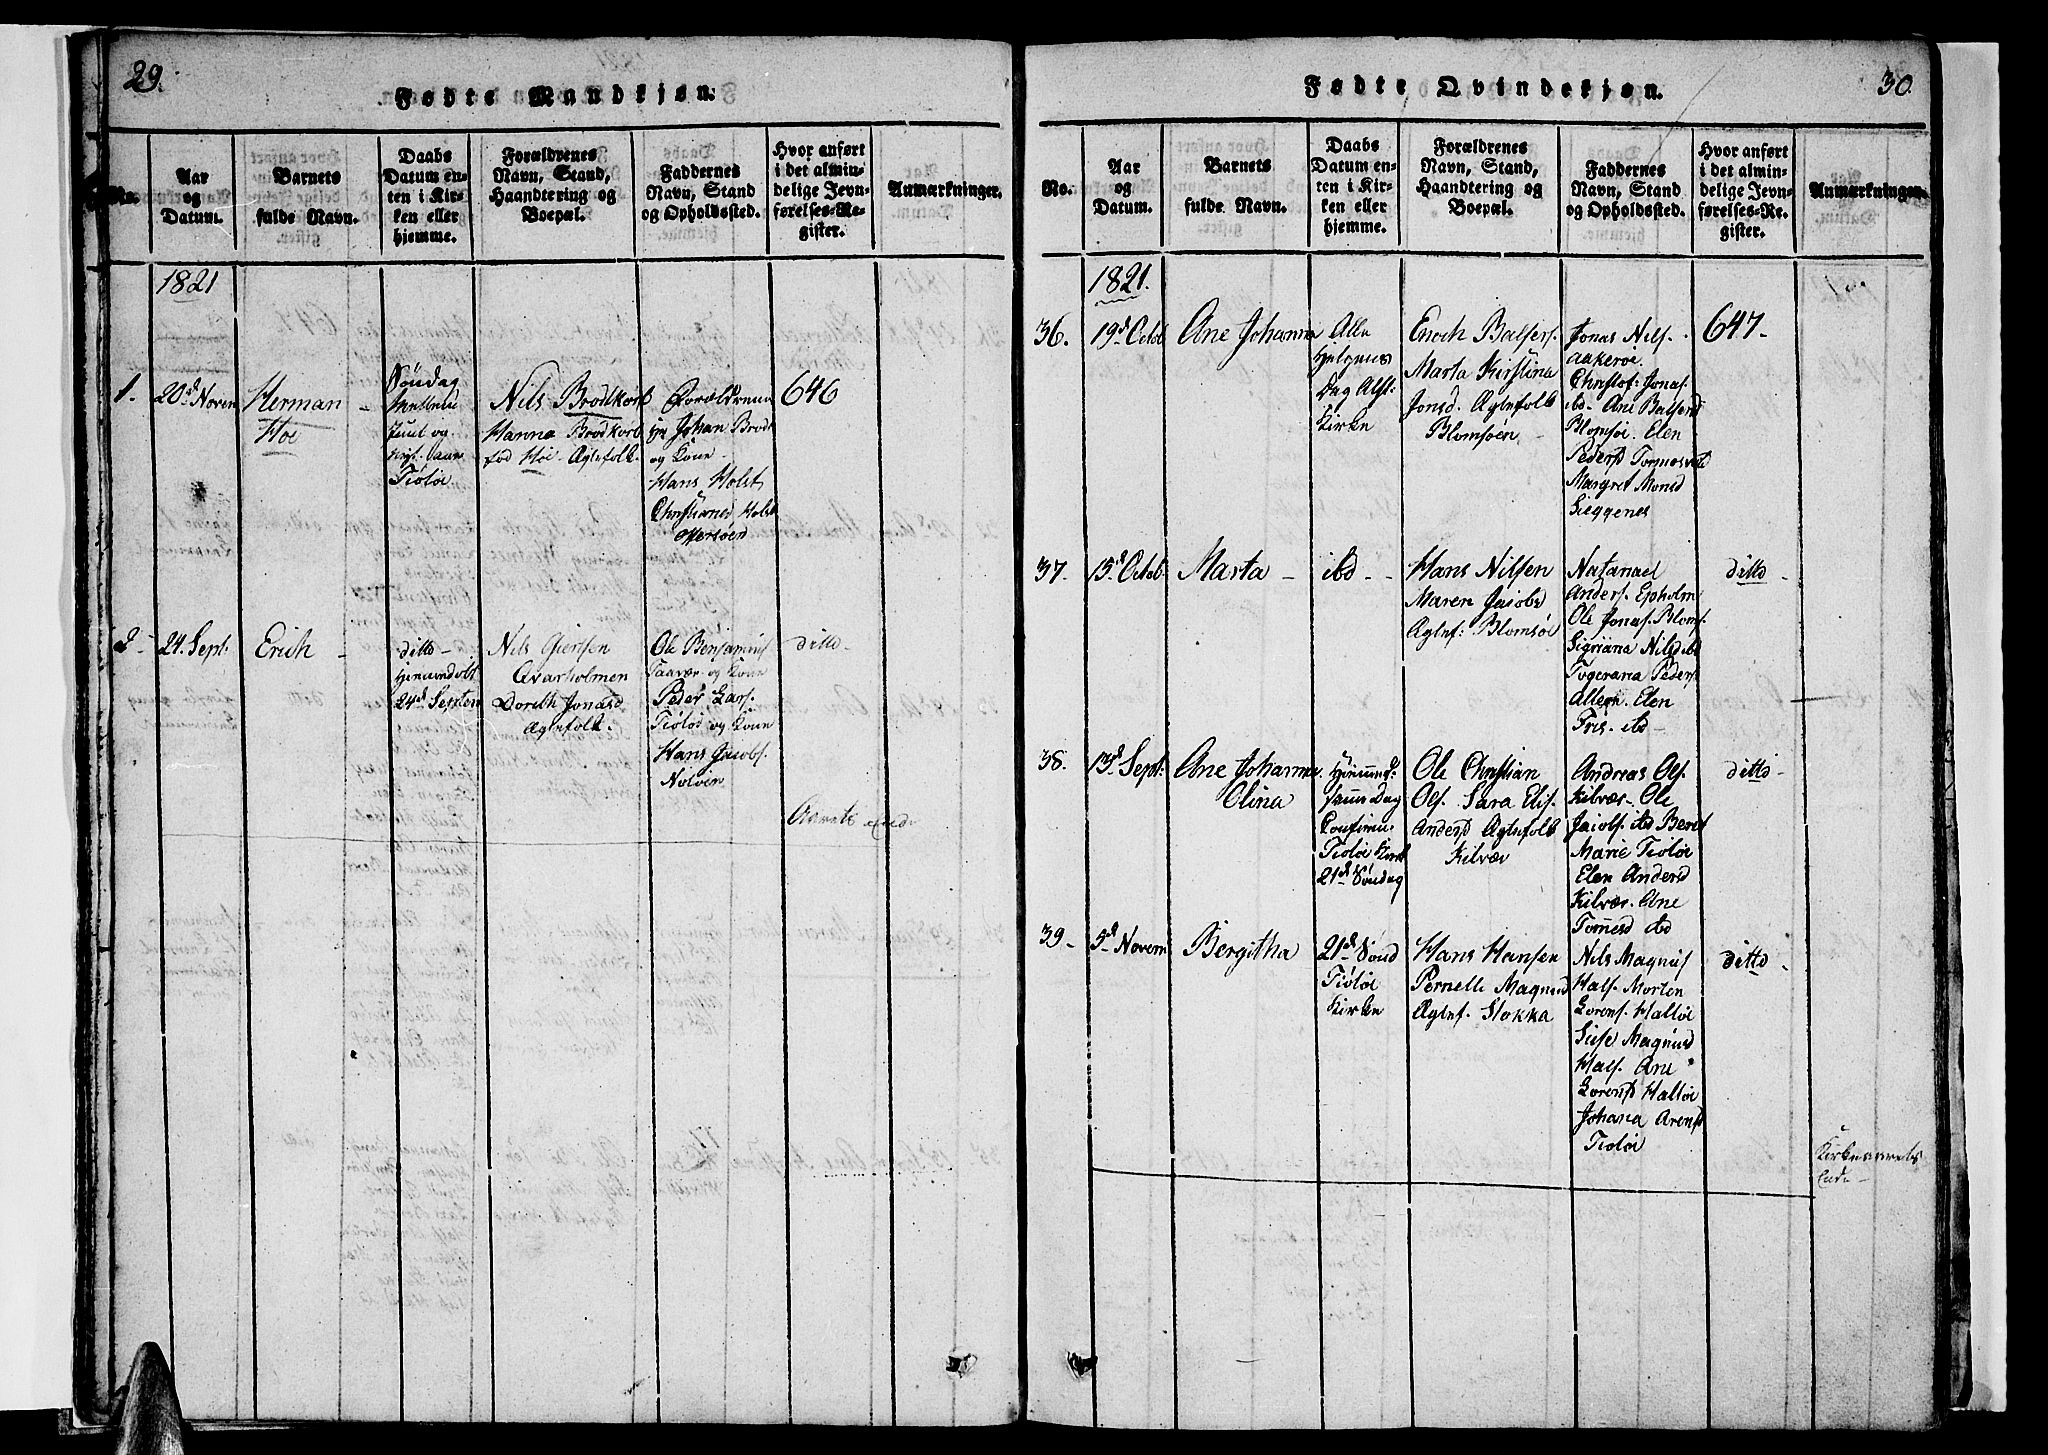 29.
Fødte Mandkjøn.
No.
Aar
og
Datum.
Barnets
fulde Navn.
Daabs
Datum en-
ten i Kir-
ken eller
hjemme.
Forældrenes
Navn, Stand,
Haandtering og
Boepæl.
Faddernes
Navn, Stand
og Opholdssted.
Hvor anført
i det almin-
delige Jevn-
førelses-Re-
gister.
Anmærkninger.
1821
1.
20d Novem
Herman
Hoe
Søndag
Juul og
Tiøtøe
Nils Brodtkorb
Hanna Brodtkorb
fød Høe. Ægtefolk.
Forældrene
Johan Brodt
og Kone
Hans Holst
Christiane Holst
646
2
24. Sept.
Erich
ditto
24d Septem
Nils Giertsen
Qvarholmen
Dorith Jonasd
Ægtefolk.
Ole Benjamins
og Kone
Peder Lars.
Tiøtøe og Kone
Hans Jacobs.
ditto
Aarets Ende
30.
Fødte Qvindekjøn.
No.
Aar
og
Datum.
Barnets
fulde Navn.
Daabs
Datum en-
ten i Kir-
ken eller
hjemme.
Forældrenes
Navn, Stand,
Haandtering og
Boepæl.
Faddernes
Navn, Stand
og Opholdssted.
Hvor anført
i det almin-
delige Jevn-
førelses-Re-
gister.
Anmærkninger.
1821.
36.
19d Octob
Ane Johanna
Alle
Helgenes
Dag Alst.
Kirke
Enoch Baltsers.
Marta Kirstina
Jonsd. Ægtefolk
Blomsøen
Jonas Nils.
Aakerøe
Christof: Jonas.
ibd. Ane Baltsersd
Blomsøe. Elen
Pedersd
Margret Monsd
647.
37.
15d Octob.
Marta
ibd
Hans Nilsen
Maren Jacobsd
Ægtef: Blomsøe
Natanael
Anders.
Ole Jonas. Bloms.
Nilsd ibd
Peders
Elen
ibd
ditto
38.
13d Sept.
Ane Johanna
Olina
Dag
Tiøtøe Kirk
21d Søndag
Ole Christian
Ols. Sara Elis.
Andersd Ægtefolk
Kilvær
Andreas Ols.
Kilvær. Ole
Jacobs. ibd Beret
Marie Tiøtøe
Elen Andersd
Kilvær. Ane
ibd
ditto
39.
5d Novem
Bergitha
21d Sønd
Tiøtøe
Kirke
Hans Hansen
Pernelle Magnusd
Ægtef. Stokka
Nils Magnus
Morten
Lorens.
Magnusd
Ane
Lorensd
Johana Arensd
Tiøtøe
ditto
Kirkeaarets
Ende